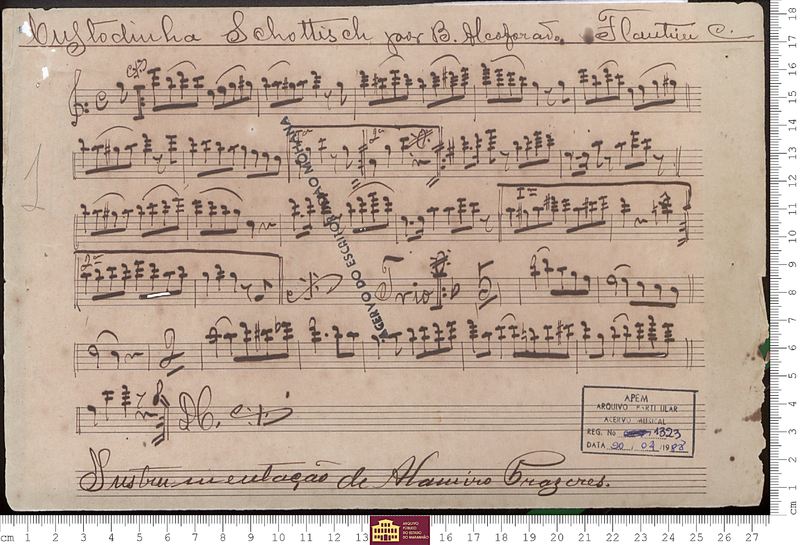 Custodinha Schottisch por B. Alcoforado Flautim C.
1ª 2ª
ACERVO DO ESCRITOR JOÃO MOHANA
Trio
D.C.
APEM
ARQUIVO PARTICULAR
ACERVO MUSICAL
REG. No 1323
DATA 20 . 04 /1988
Instrumentação de Alamiro Prazeres.
ARQUIVO
PÚBLICO
DO ESTADO
DO MARANHÃO
cm 1 2 3 4 5 6 7 8 9 10 11 12 13 16 17 18 19 20 21 22 23 24 25 26 27
18
17
16
15
14
13
12
11
10
9
8
7
6
5
4
3
2
1
cm